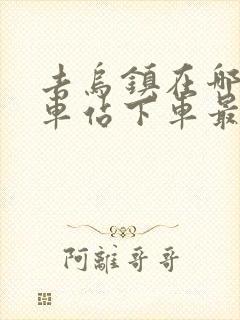 去烏鎮在哪
車佔下車最
阿離哥哥